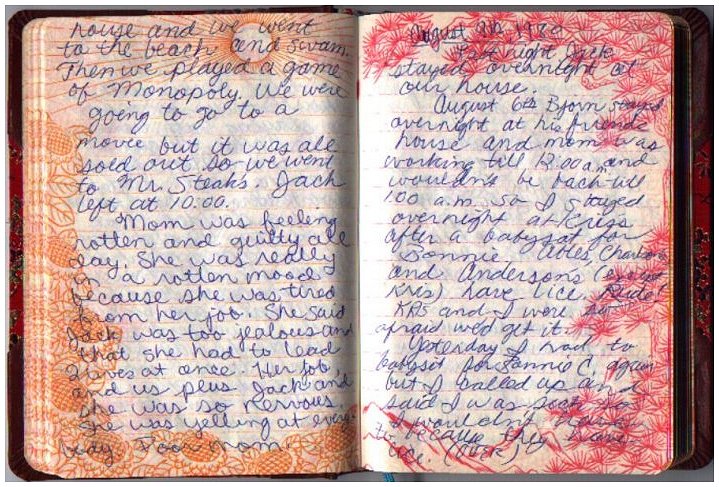 house and we went
to the beach and swam.
Then we played a game
of Monopoly. We were
going to go to a
movie but it was all
sold out so we went
to Mr. Steaks. Jack
left at 10:00.
Mom was feeling
rotten and guilty all
day. She was really
in a rotten mood
because she was tired
from her job. She said
Jack was too jealous and
that she had to lead
2 lives at once. Her job,
and us plus Jack and
she was so nervous
she was yelling at every-
body. Poor mom.
August 9th, 1970
Last night Jack
stayed overnight at
our house.
August 6th Bjorn stayed
overnight at his friends
house and mom was
working till 12:00 a.m. and
wouldn't be back till
1:00 a.m. so I stayed
overnight at Kris's
after a babysat for
Bonnie. Ables Charlsons
and Andersons (except
Kris) have lice.
Kris and I were so
afraid we'd get it.
Yesterday I had to
babysit for Bonnie C. again
but I called up and
said I was sick so
I wouldn't
because they have
lice. (OVER)